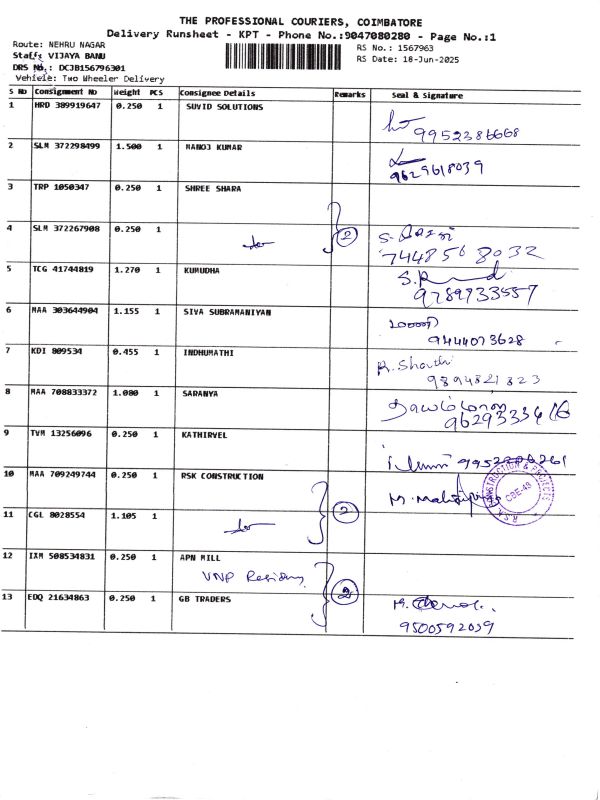 THE PROFESSIONAL COURIERS, COIMBATORE
Delivery Runsheet - KPT - Phone No.:9047080280 - Page No.:1
Route: NEHRU NAGAR
RS No.: 1567963
Staff: VIJAYA BANU
RS Date: 18-Jun-2025
DRS No.: DCJB156796301
Vehicle: Two Wheeler Delivery
S No Consignment No Weight PCS Consignee Details Remarks Seal & Signature
1 HRD 309919647 0.250 1 SUVID SOLUTIONS
9952386668
2 SLM 372298499 1.500 1 MANOJ KUMAR
9629618039
3 TRP 1050347 0.250 1 SHREE SHARA
4 SLM 372267908 0.250 1 2
7448568032
5 TCG 41744819 1.270 1 KUMUDHA
9789933557
6 MAA 303644904 1.155 1 SIVA SUBRAMANIYAN
மணி
9444073628
7 KDI 809534 0.455 1 INDHUMATHI
R. Shanthi
9894821823
8 MAA 708833372 1.080 1 SARANYA
9 TVM 13256096 0.250 1 KATHIRVEL
10 MAA 709249744 0.250 1 RSK CONSTRUCTION
CONSTRUCTION & PROJECTS
CBE-43
R.S.K
2
11 CGL 8028554 1.105 1
12 IXM 508534831 0.250 1 APN MILL
VNP Residency
2
13 EDQ 21634863 0.250 1 GB TRADERS
9500592039